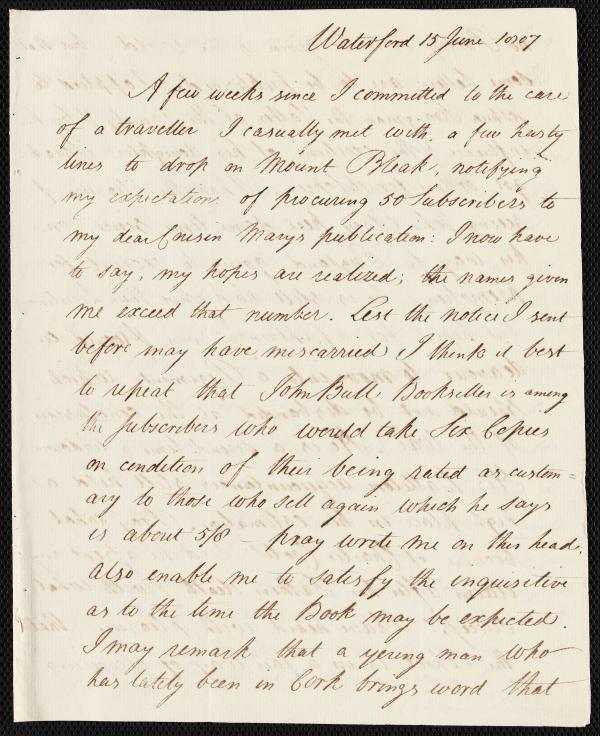 Waterford 15 June 1807
A few weeks since I committed to the care
of a traveller I casually met with, a few hasty
lines to drop on Mount Bleak, notifying
my expectations of procuring 50 Subscribers to
my dear Cousin Marys publication: I now have
to say, my hopes are realized; the names given
me exceed that number. Lest the notice I sent
before may have miscarried I think it best
to repeat that John Bull Bookseller is among
the subscribers who would take Six Copies
on condition of their being rated as custom=
ary to those who sell again which he says
is about 5/8 — pray write me on this head,
also enable me to satisfy the inquisitive
as to the time the Book may be expected.
I may remark that a young man who
has lately been in Cork brings word that